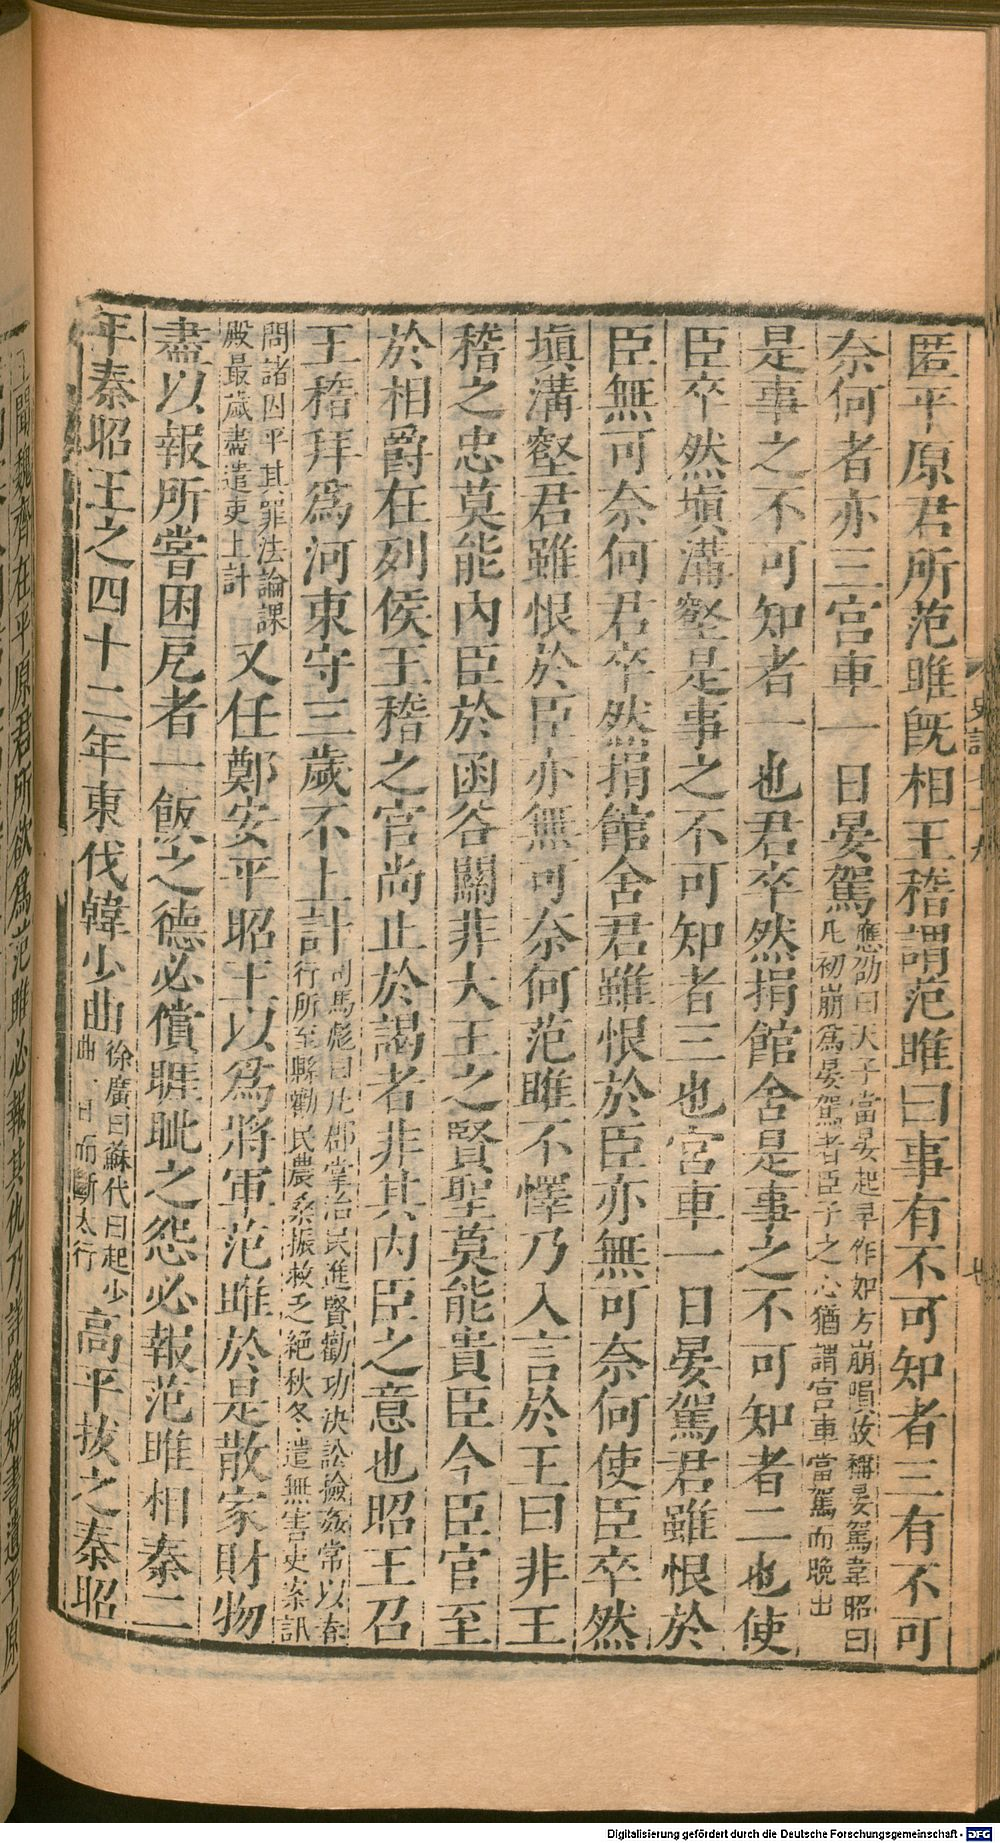 匿平原君所范雎既相王稽謂范雎曰事有不可知者三有不可
奈何者亦三宮車一日晏駕應劭曰天子當晏起早作如方崩隕故稱晏駕韋昭曰凡初崩爲晏駕者臣子之心猶謂宮車當駕而晚出
是事之不可知者一也君卒然捐館舍是事之不可知者二也使
臣卒然塡溝壑是事之不可知者三也宮車一日晏駕君雖恨於
臣無可奈何君卒然捐館舍君雖恨於臣亦無可奈何使臣卒然
塡溝壑君雖恨於臣亦無可奈何范雎不懌乃入言於王曰非王
稽之忠莫能內臣於函谷關非大王之賢聖莫能貴臣今臣官至
於相爵在列侯王稽之官尚止於謁者非其內臣之意也昭王召
王稽拜爲河東守三歲不上計司馬彪曰凡郡掌治民進賢勸功決訟檢姦常以春行所至縣勸民農桑振救乏絕秋冬遣無害吏案訊
問諸囚平其罪法論課殿最歲盡遣吏上計又任鄭安平昭王以爲將軍范雎於是散家財物
盡以報所嘗困戹者一飯之德必償睚眦之怨必報范雎相秦二
年秦昭王之四十二年東伐韓少曲徐廣曰蘇代曰起少曲一日而斷太行高平拔之秦昭
聞魏齊在平原君所欲爲范雎必報其仇乃詳爲好書遺平原
Digitalisierung gefördert durch die Deutsche Forschungsgemeinschaft - DFG